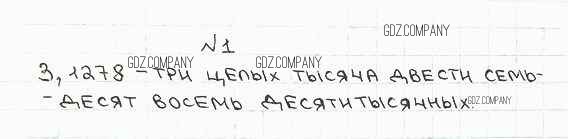 GDZ.COMPANY
№1
GDZ.COMPANY GDZ.COMPANY
3,1278 – три целых тысяча двести семь-
-десят восемь десятитысячных.
GDZ.COMPANY